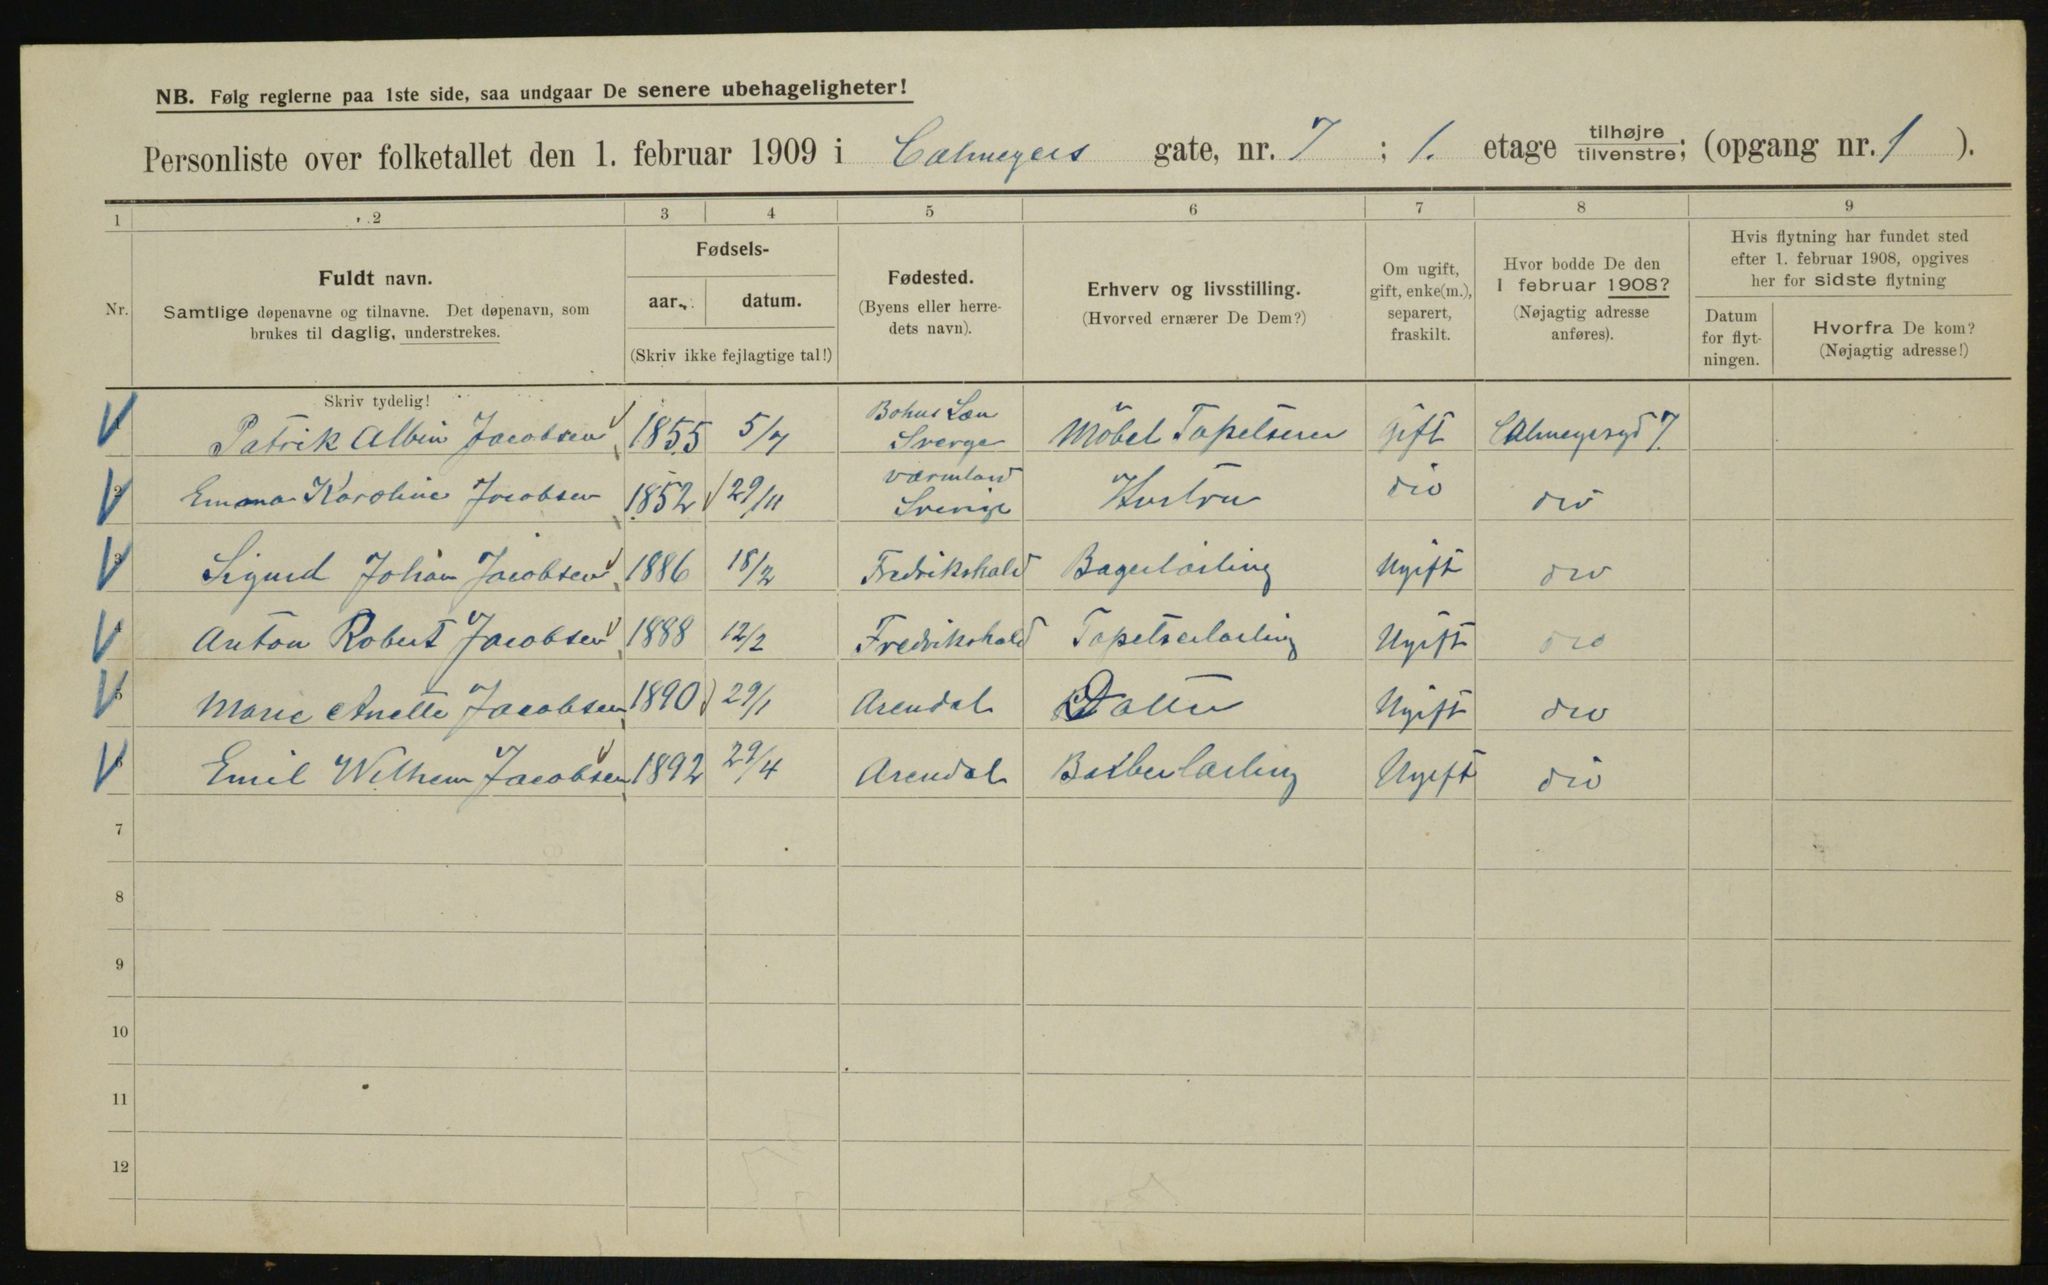 NB. Følg reglerne paa 1ste side, saa undgaar De senere ubehageligheter!
Personliste over folketallet den 1. februar 1909 i Calmeyers gate, nr. 7 ; 1. etage tilhøjre tilvenstre; (opgang nr. 1 ).
1 2 3 4 5 6 7 8 9
Nr.
Fuldt navn.
Samtlige døpenavne og tilnavne. Det døpenavn, som
brukes til daglig, understrekes.
Fødsels-
aar. datum.
(Skriv ikke fejlagtige tal!)
Fødested.
(Byens eller herre-
dets navn).
Erhverv og livsstilling.
(Hvorved ernærer De Dem?)
Om ugift,
gift, enke(m.),
separert,
fraskilt.
Hvor bodde De den
1 februar 1908?
(Nøjagtig adresse
anføres).
Hvis flytning har fundet sted
efter 1. februar 1908, opgives
her for sidste flytning
Datum
for flyt-
ningen.
Hvorfra De kom?
(Nøjagtig adresse!)
Skriv tydelig!
Patrik Albin Jacobsen 1855 5/7 Bohus Læn Sverge Möbel Tapetserer Gift Calmeyersgd 7.
2 Emma Karoline Jacobsen 1852 29/11 Værmland Sverige Hustru dio dio
3 Sigurd Johan Jacobsen 1886 18/2 Fredrikshald Bagerlærling Ugift dio
4 Anton Robert Jacobsen 1888 12/2 Fredrikshald Tapetserlærling Ugift dio
5 Marie Anette Jacobsen 1890 29/1 Arendal Datter Ugift dio
6 Emil Wilhem Jacobsen 1892 29/4 Arendal Barberlærling Ugift dio
7
8
9
10
11
12